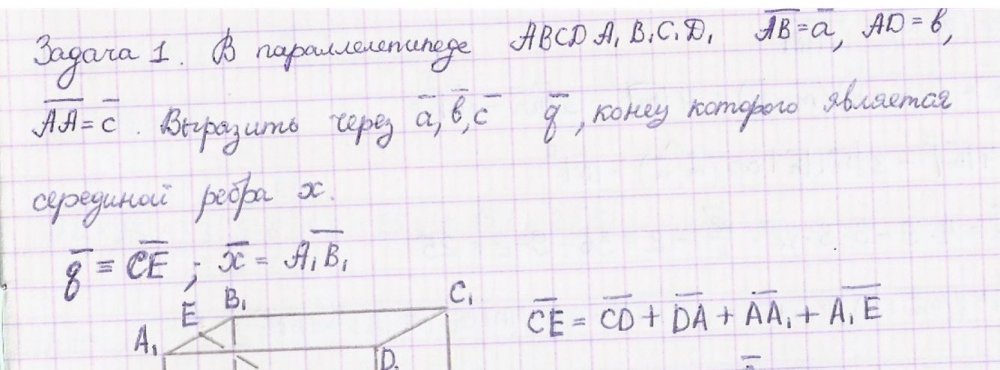 Задача 1. В параллелепипеде ABCDA₁B₁C₁D₁ A̅B̅=a̅, AD=b,
A̅A̅=c̅. Выразить через a̅, b̅, c̅ q̅, конец которого является
серединой ребра x.
q̅ ≡ C̅E̅ ; x̅ = A̅₁B̅₁
E B₁ C₁
C̅E̅ = C̅D̅ + D̅A̅ + A̅A̅₁ + A̅₁E̅
A₁ D₁